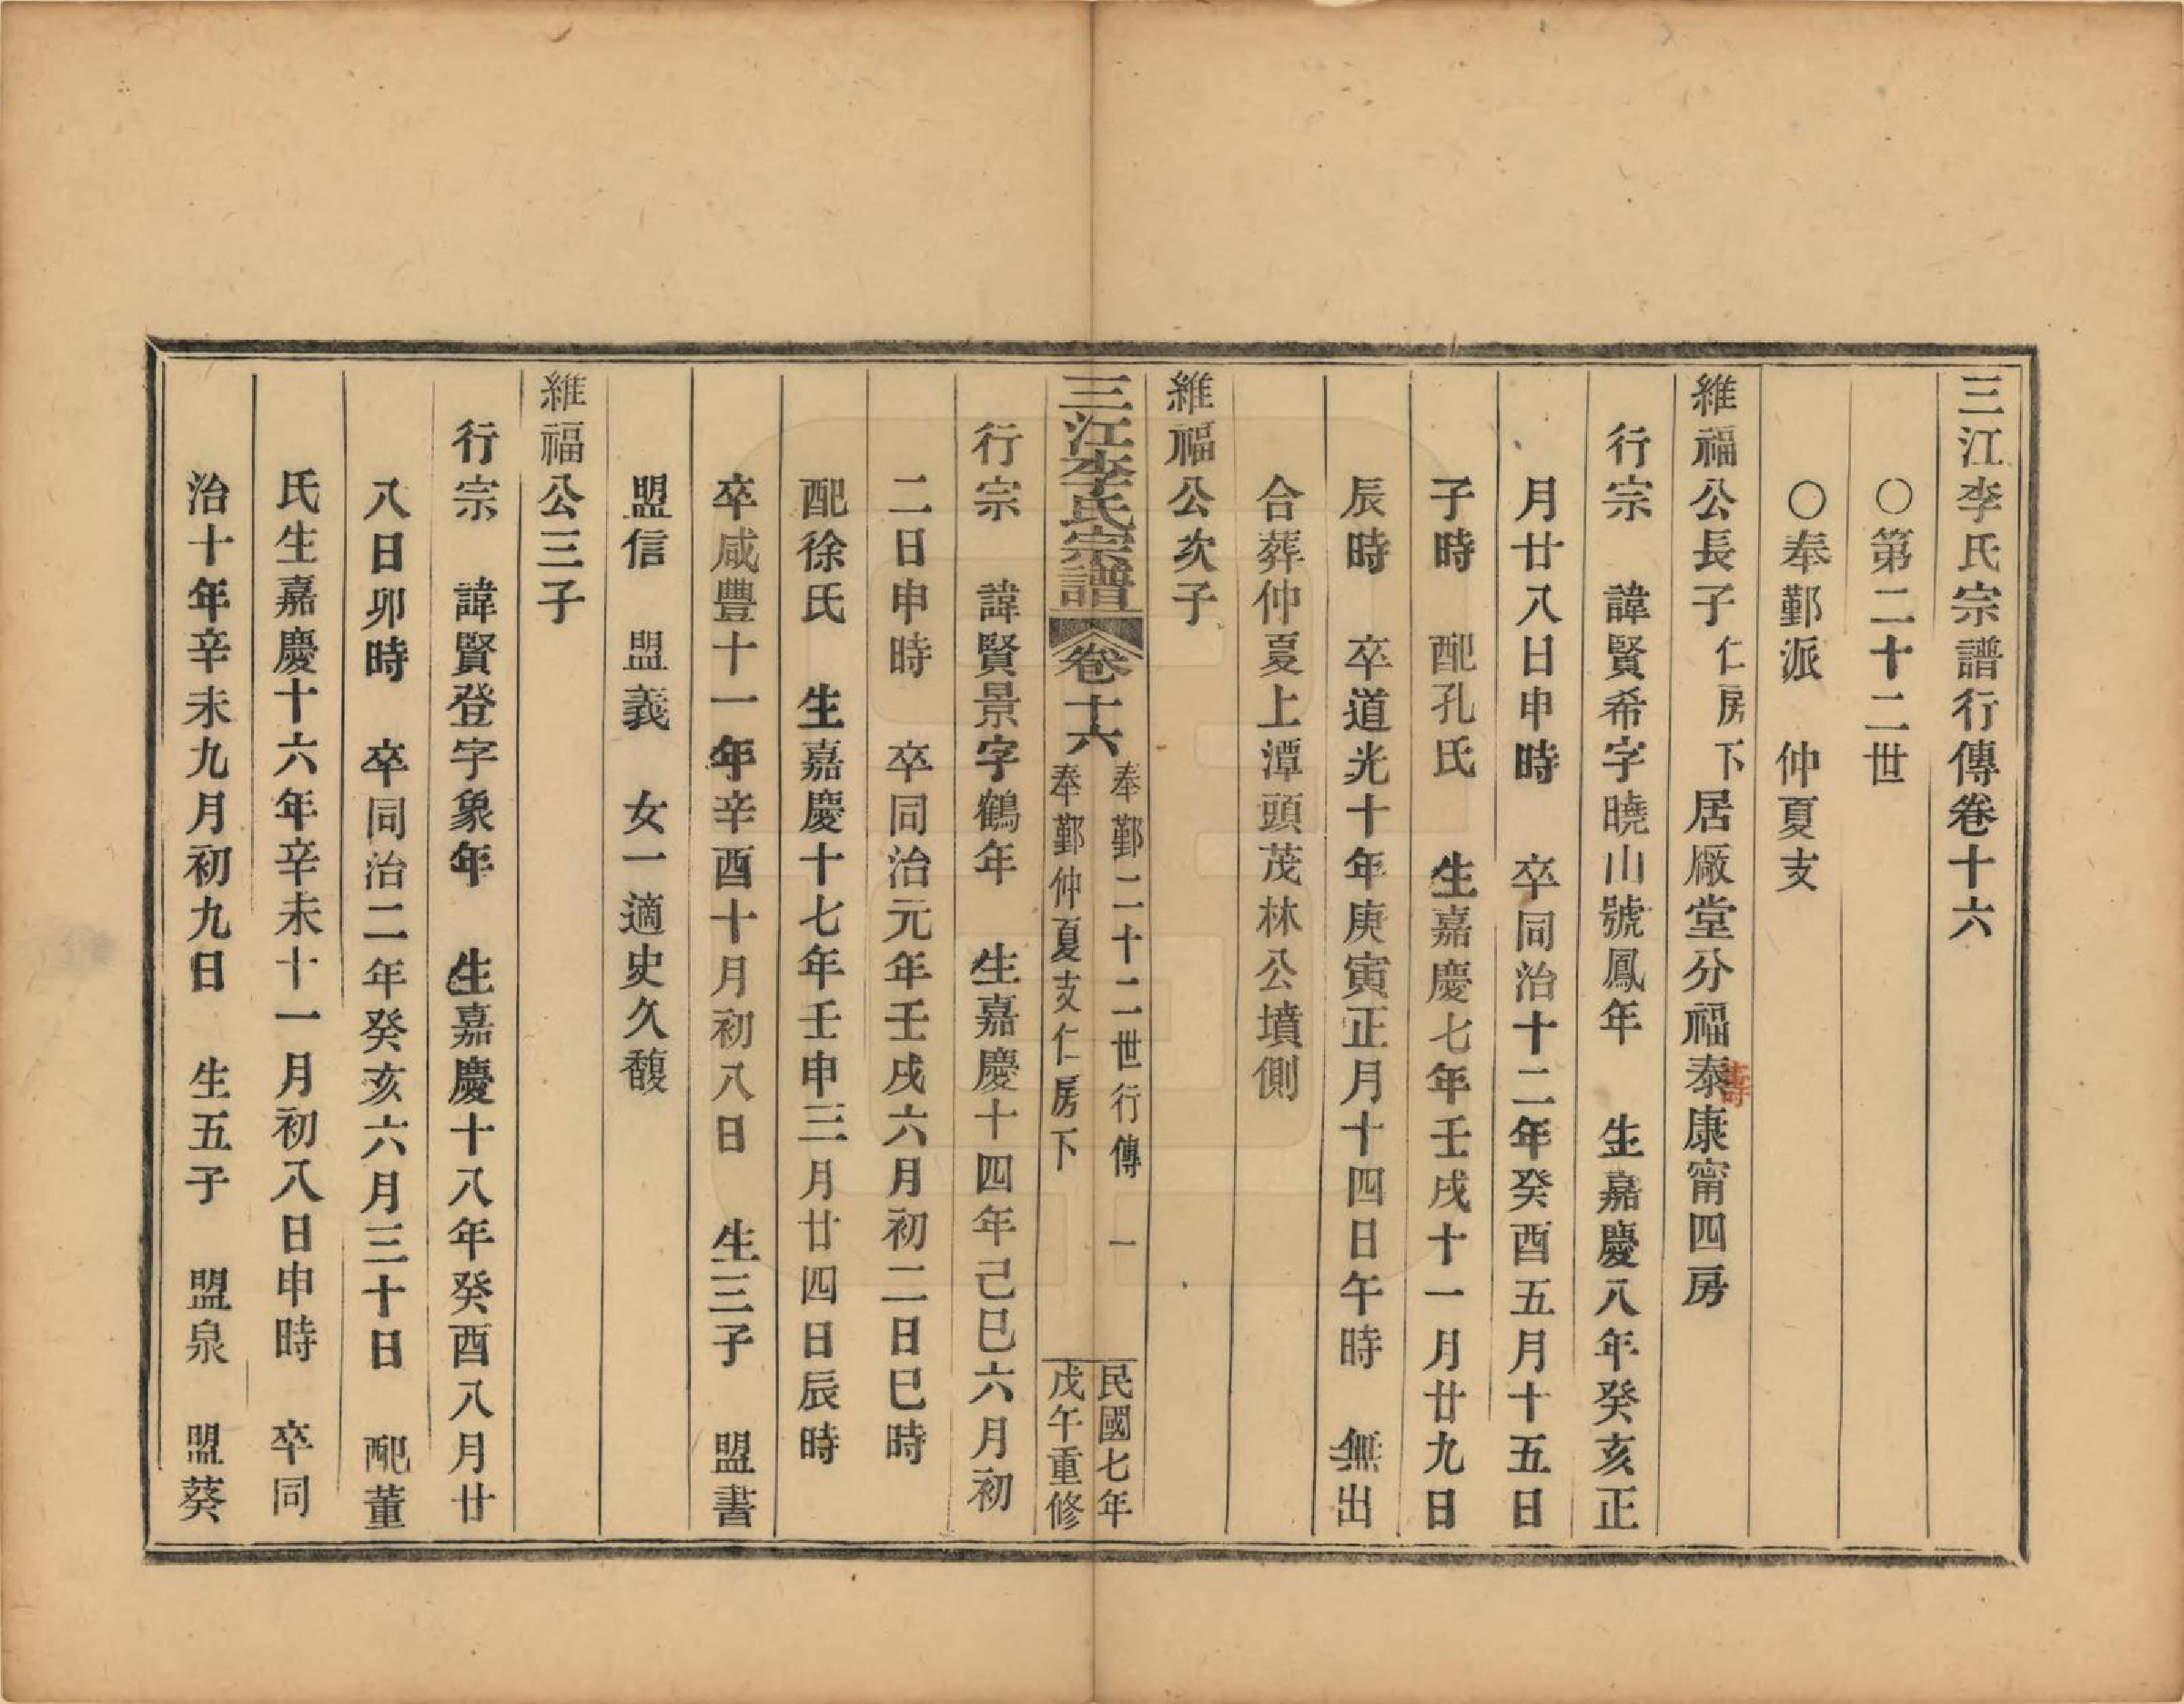 三江李氏宗譜行傳卷十六
〇第二十二世
〇奉鄞派　仲夏支
維福公長子　仁房下居厰堂分福泰康甯四房
壽
行宗　諱賢希字曉山號鳳年　生嘉慶八年癸亥正
月廿八日申時　卒同治十二年癸酉五月十五日
子時　配孔氏　生嘉慶七年壬戌十一月廿九日
辰時　卒道光十年庚寅正月十四日午時　無出
合葬仲夏上潭頭茂林公墳側
維福公次子
三江李氏宗譜　卷十六　奉鄞二十二世行傳　一
奉鄞仲夏支仁房下
民國七年
戊午重修
行宗　諱賢景字鶴年　生嘉慶十四年己巳六月初
二日申時　卒同治元年壬戌六月初二日巳時
配徐氏　生嘉慶十七年壬申三月廿四日辰時
卒咸豐十一年辛酉十月初八日　生三子　盟書
盟信　盟義　女一適史久馥
維福公三子
行宗　諱賢登字象年　生嘉慶十八年癸酉八月廿
八日卯時　卒同治二年癸亥六月三十日　配董
氏生嘉慶十六年辛未十一月初八日申時　卒同
治十年辛未九月初九日　生五子　盟泉　盟葵